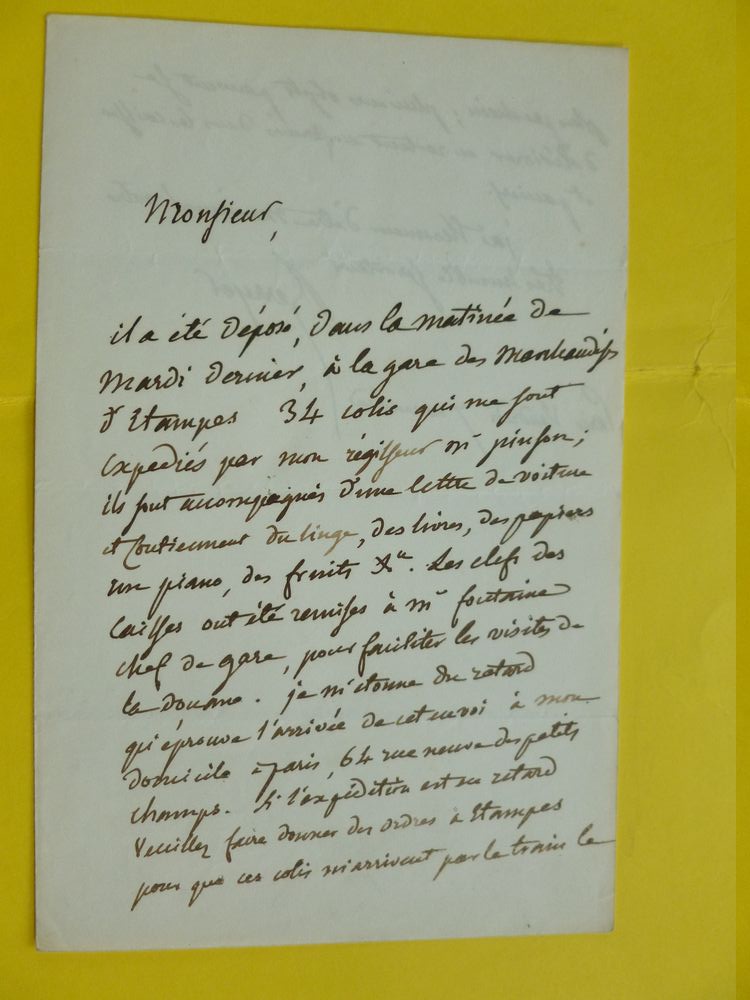 Monsieur,
il a été déposé, dans la matinée de
Mardi dernier, à la gare des Marchandises
d'Etampes 34 colis qui me sont
expediés par mon régisseur mr pinson ;
ils sont accompagnés d'une lettre de voiture
et contiennent du linge, des livres, des papiers
un piano, des fruits &a. Les clefs des
caisses ont été remises à mr fontaine
chef de gare, pour faciliter les visites de
la douane. je m'étonne du retard
qu'éprouve l'arrivée de cet envoi à mon
domicile à paris, 64 rue neuve des petits
champs. Si l'expédition est en retard
Veuillez faire donner des ordres à Etampes
pour que ces colis m'arrivent par le train le